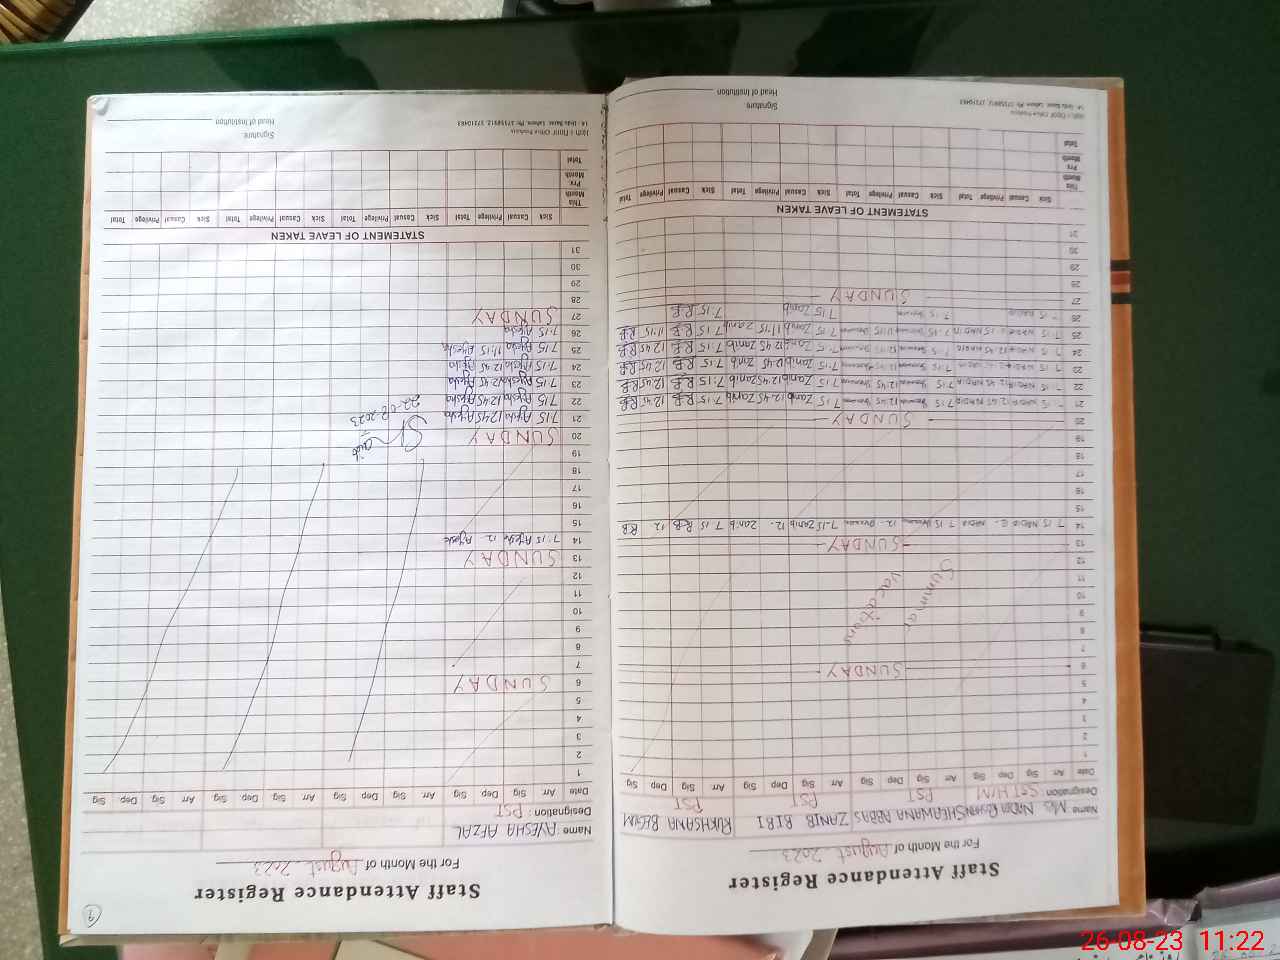 Staff Attendance Register
For the Month of August 2023
Name Mis NADIA ROSHAN SHERWANA ABBAS ZANIB BIBI RUKHSANA BEGUM
Designation: SST H/M PST PST PST
Date Arr Sig Dep Sig Arr Sig Dep Sig Arr Sig Dep Sig Arr Sig Dep Sig
1
2
3
4
5
6 SUNDAY
7
8
9
10
11
12
Summer
Vacations
13 SUNDAY
14 7 15 NADIA 12 NADIA 7 15 12 7-15 Zanib 12 Zanib 7 15 R.B 12 R.B
15
16
17
18
19
20 SUNDAY
21 7 15 NADIA 12 45 NADIA 7 15 12 45 7 15 Zanib 12 45 Zanib 7 15 R.B 12 45 R.B
22 7 15 NADIA 12 45 NADIA 7 15 12 45 7 15 Zanib 12 45 Zanib 7:15 R.B 12 45 R.B
23 7 15 NADIA 12 45 NADIA 7 15 12 45 7 15 Zanib 12 45 Zanib 7:15 R.B 12 45 R.B
24 7 15 NADIA 12 45 NADIA 7 15 12 45 7 15 Zanib 12 45 Zanib 7 15 R.B 12 45 R.B
25 7 15 NADIA 11 15 NADIA 7 15 11 15 7 15 Zanib 11 15 Zanib 7 15 R.B 11 15 R.B
26 7 15 NADIA 7 15 7 15 Zanib 7 15 R.B
27 SUNDAY
28
29
30
31
STATEMENT OF LEAVE TAKEN
Sick Casual Privilege Total Sick Casual Privilege Total Sick Casual Privilege Total Sick Casual Privilege Total
This Month
Prv Month
Total
Signature
Head of Institution
9
Staff Attendance Register
For the Month of August 2023
Name AYESHA AFZAL
Designation: PST
Date Arr Sig Dep Sig Arr Sig Dep Sig Arr Sig Dep Sig Arr Sig Dep Sig
1
2
3
4
5
6 SUNDAY
7
8
9
10
11
12
13 SUNDAY
14 7:15 Ayesha 12 Ayesha
15
16
17
18
19
20 SUNDAY
21 7:15 Ayesha 12 45 Ayesha
22 7:15 Ayesha 12 45 Ayesha
22-08-2023
23 7:15 Ayesha 12 45 Ayesha
24 7:15 Ayesha 12 45 Ayesha
25 7:15 Ayesha 11:15 Ayesha
26 7:15 Ayesha
27 SUNDAY
28
29
30
31
STATEMENT OF LEAVE TAKEN
Sick Casual Privilege Total Sick Casual Privilege Total Sick Casual Privilege Total Sick Casual Privilege Total
This Month
Prv Month
Total
Signature
Head of Institution
26-08-23 11:22